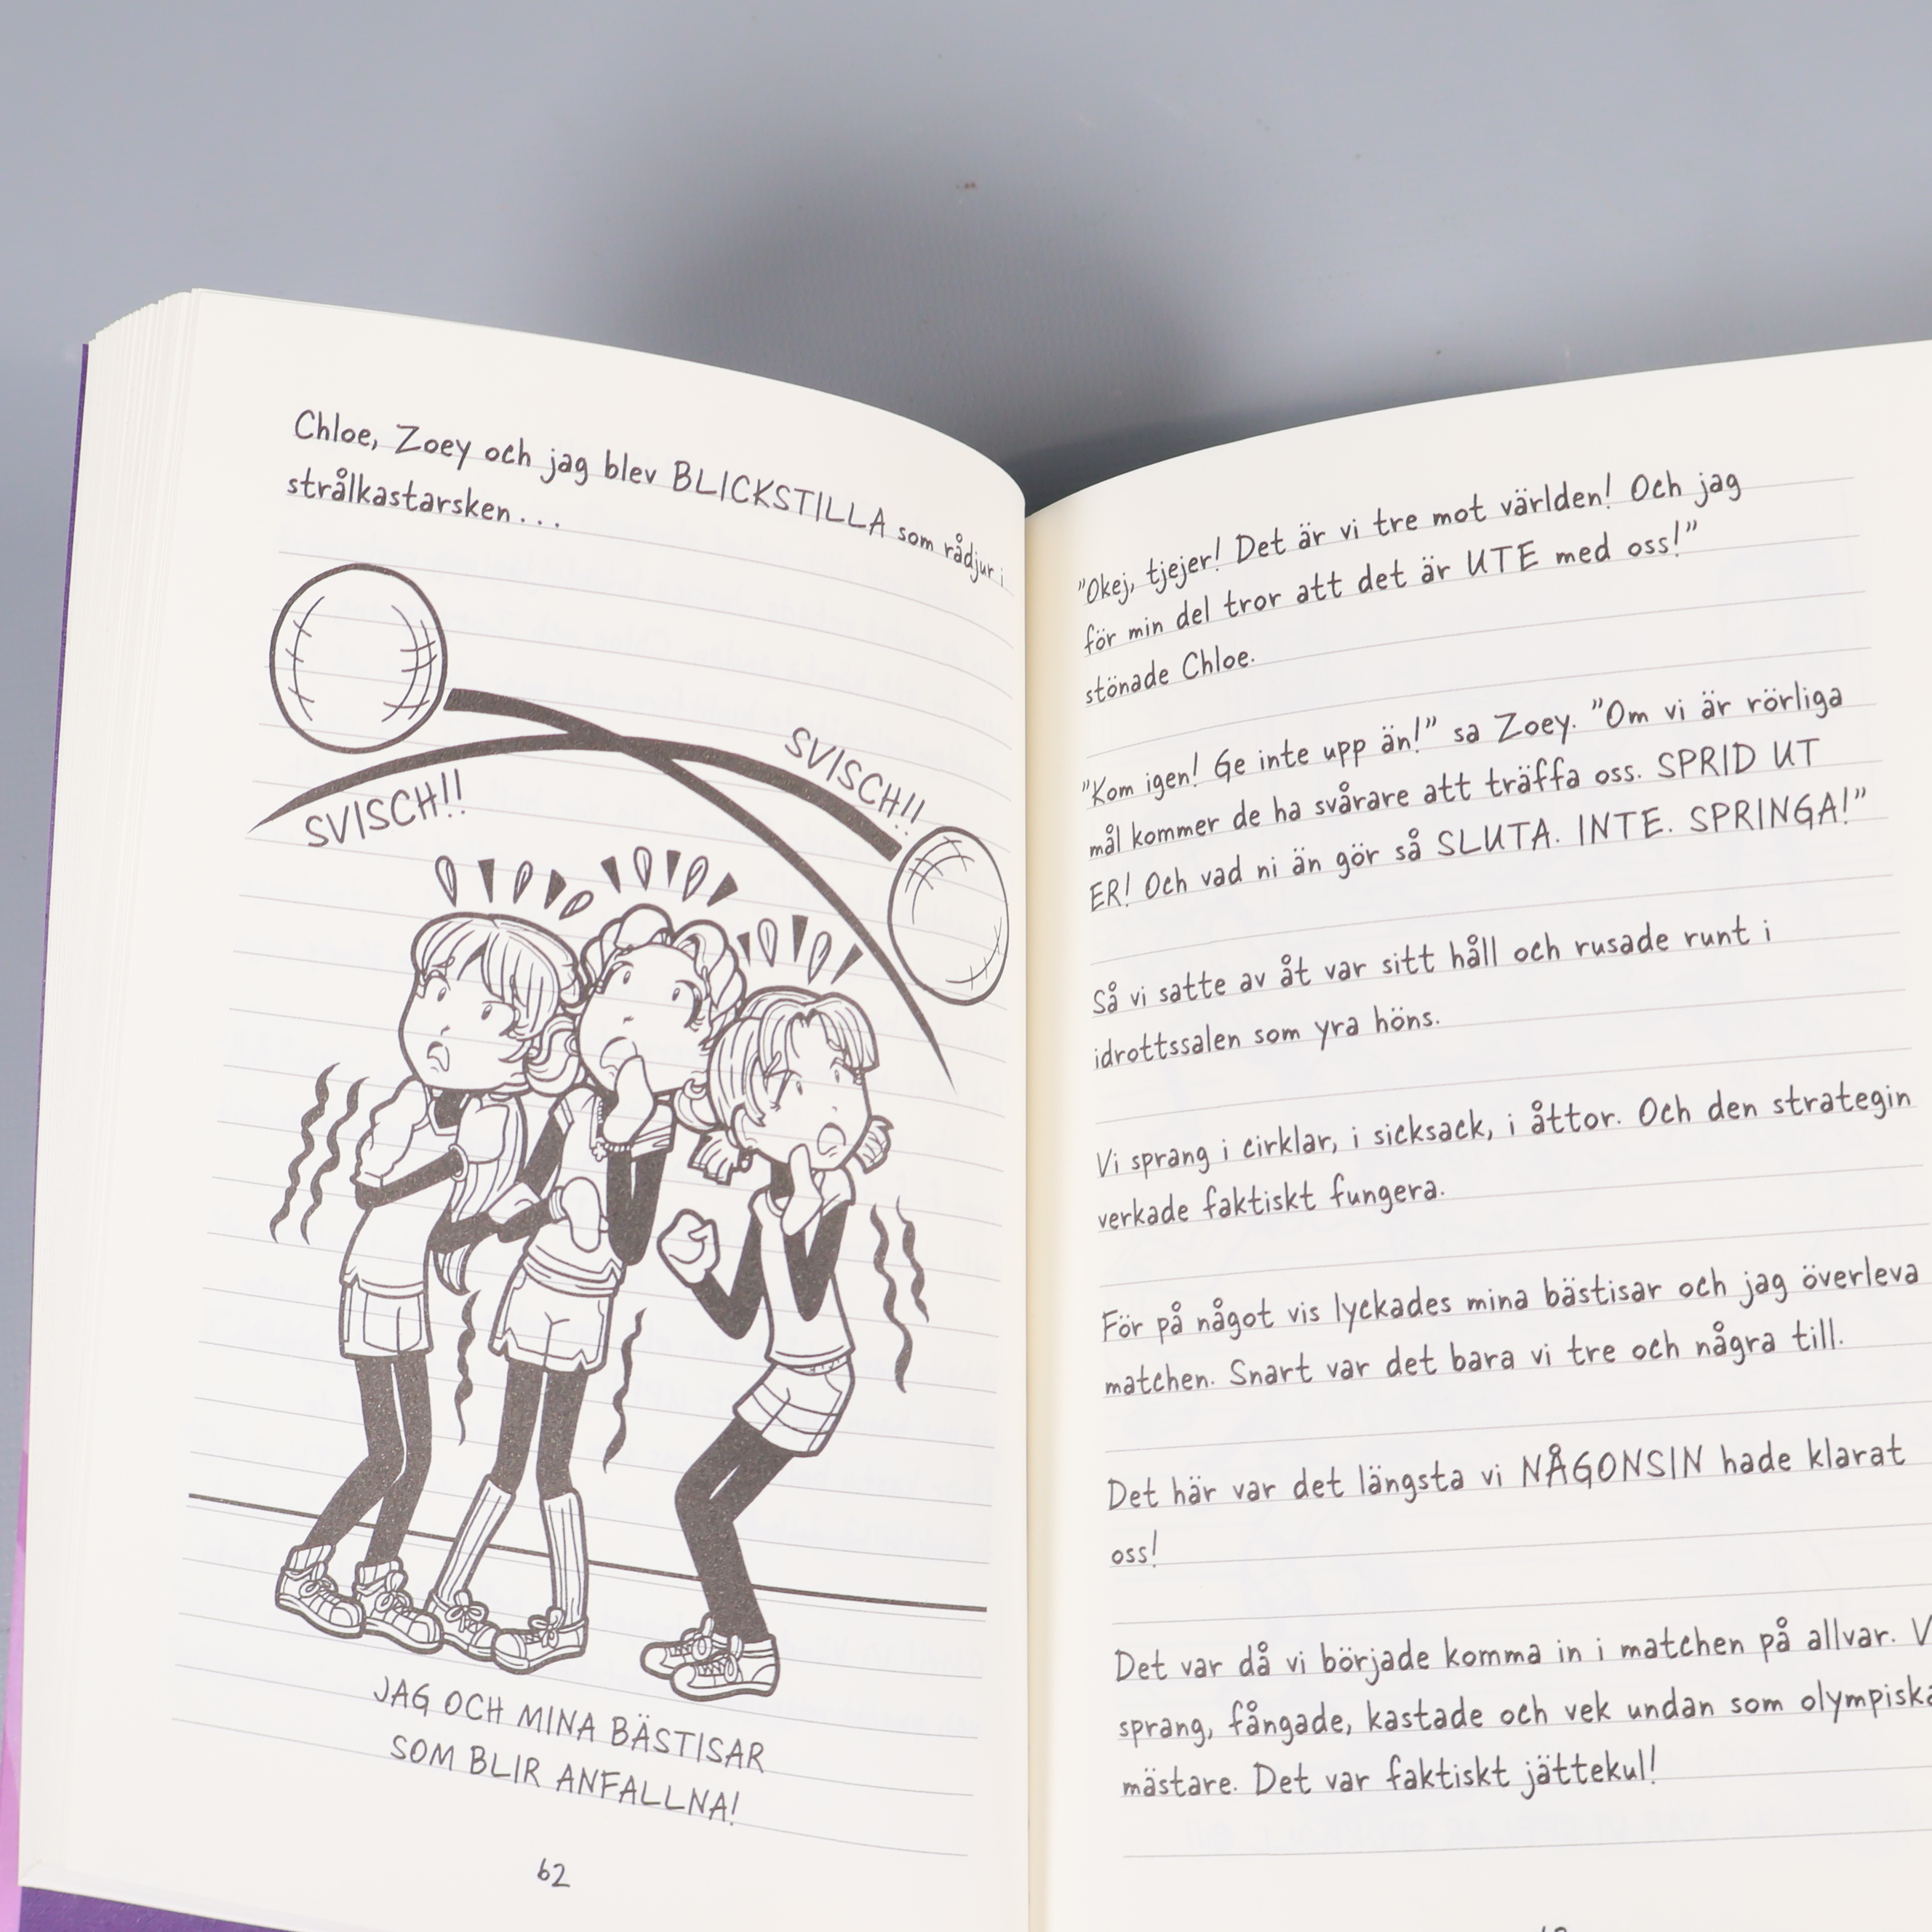 Chloe, Zoey och jag blev BLICKSTILLA som rådjur i
strålkastarsken...
SVISCH!!
SVISCH!!
JAG OCH MINA BÄSTISAR
SOM BLIR ANFALLNA!
62
"Okej, tjejer! Det är vi tre mot världen! Och jag
för min del tror att det är UTE med oss!"
stönade Chloe.
"Kom igen! Ge inte upp än!" sa Zoey. "Om vi är rörliga
mål kommer de ha svårare att träffa oss. SPRID UT
ER! Och vad ni än gör så SLUTA. INTE. SPRINGA!"
Så vi satte av åt var sitt håll och rusade runt i
idrottssalen som yra höns.
Vi sprang i cirklar, i sicksack, i åttor. Och den strategin
verkade faktiskt fungera.
För på något vis lyckades mina bästisar och jag överleva
matchen. Snart var det bara vi tre och några till.
Det här var det längsta vi NÅGONSIN hade klarat
oss!
Det var då vi började komma in i matchen på allvar.
sprang, fångade, kastade och vek undan som
mästare. Det var faktiskt jättekul!